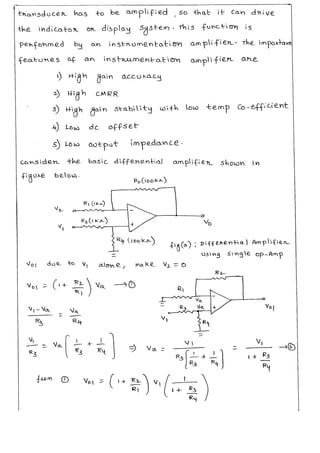 transducer has to be amplified, so that it can drive
the indicator or display system. This function is
performed by an instrumentation amplifier. The important
features of an instrumentation amplifier are
1) High gain accuracy
2) High CMRR
3) High gain stability with low temp co-efficient
4) Low dc offset
5) Low output impedance.
Consider the basic differential amplifier shown in
figure below.
R2(100KΩ)
R1(1KΩ)
V2
R3(1KΩ)
V1
V0
R4(100KΩ)
fig(a): Differential Amplifier
using single op-Amp
V01 due to V1 alone, make V2 = 0
R2
V01 = (1 + R2/R1) Va → ①
R1
Va
R3 Va
V01
V1
R4
(V1 - Va)/R3 = Va/R4
V1/R3 = Va (1/R3 + 1/R4) ⇒ Va = V1/(R3 [1/R3 + 1/R4]) = V1/(1 + R3/R4) → ②
from ① V01 = (1 + R2/R1) V1 (1/(1 + R3/R4))